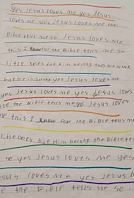 Yes Jesus loves me yes Jesus
loves me yes Jesus loves me the
Bible tells me so Jesus loves me
this I know for the Bible tells me so
little ones to him belong they are weak
but he is strong yes Jesus loves me
yes Jesus loves me yes Jesus loves
me the Bible tells me so Jesus loves
me this I know for the Bible tells me
to him belong
so yes Jesus loves me yes
Jesus loves me yes Jesus loves
me the Bible tells me so